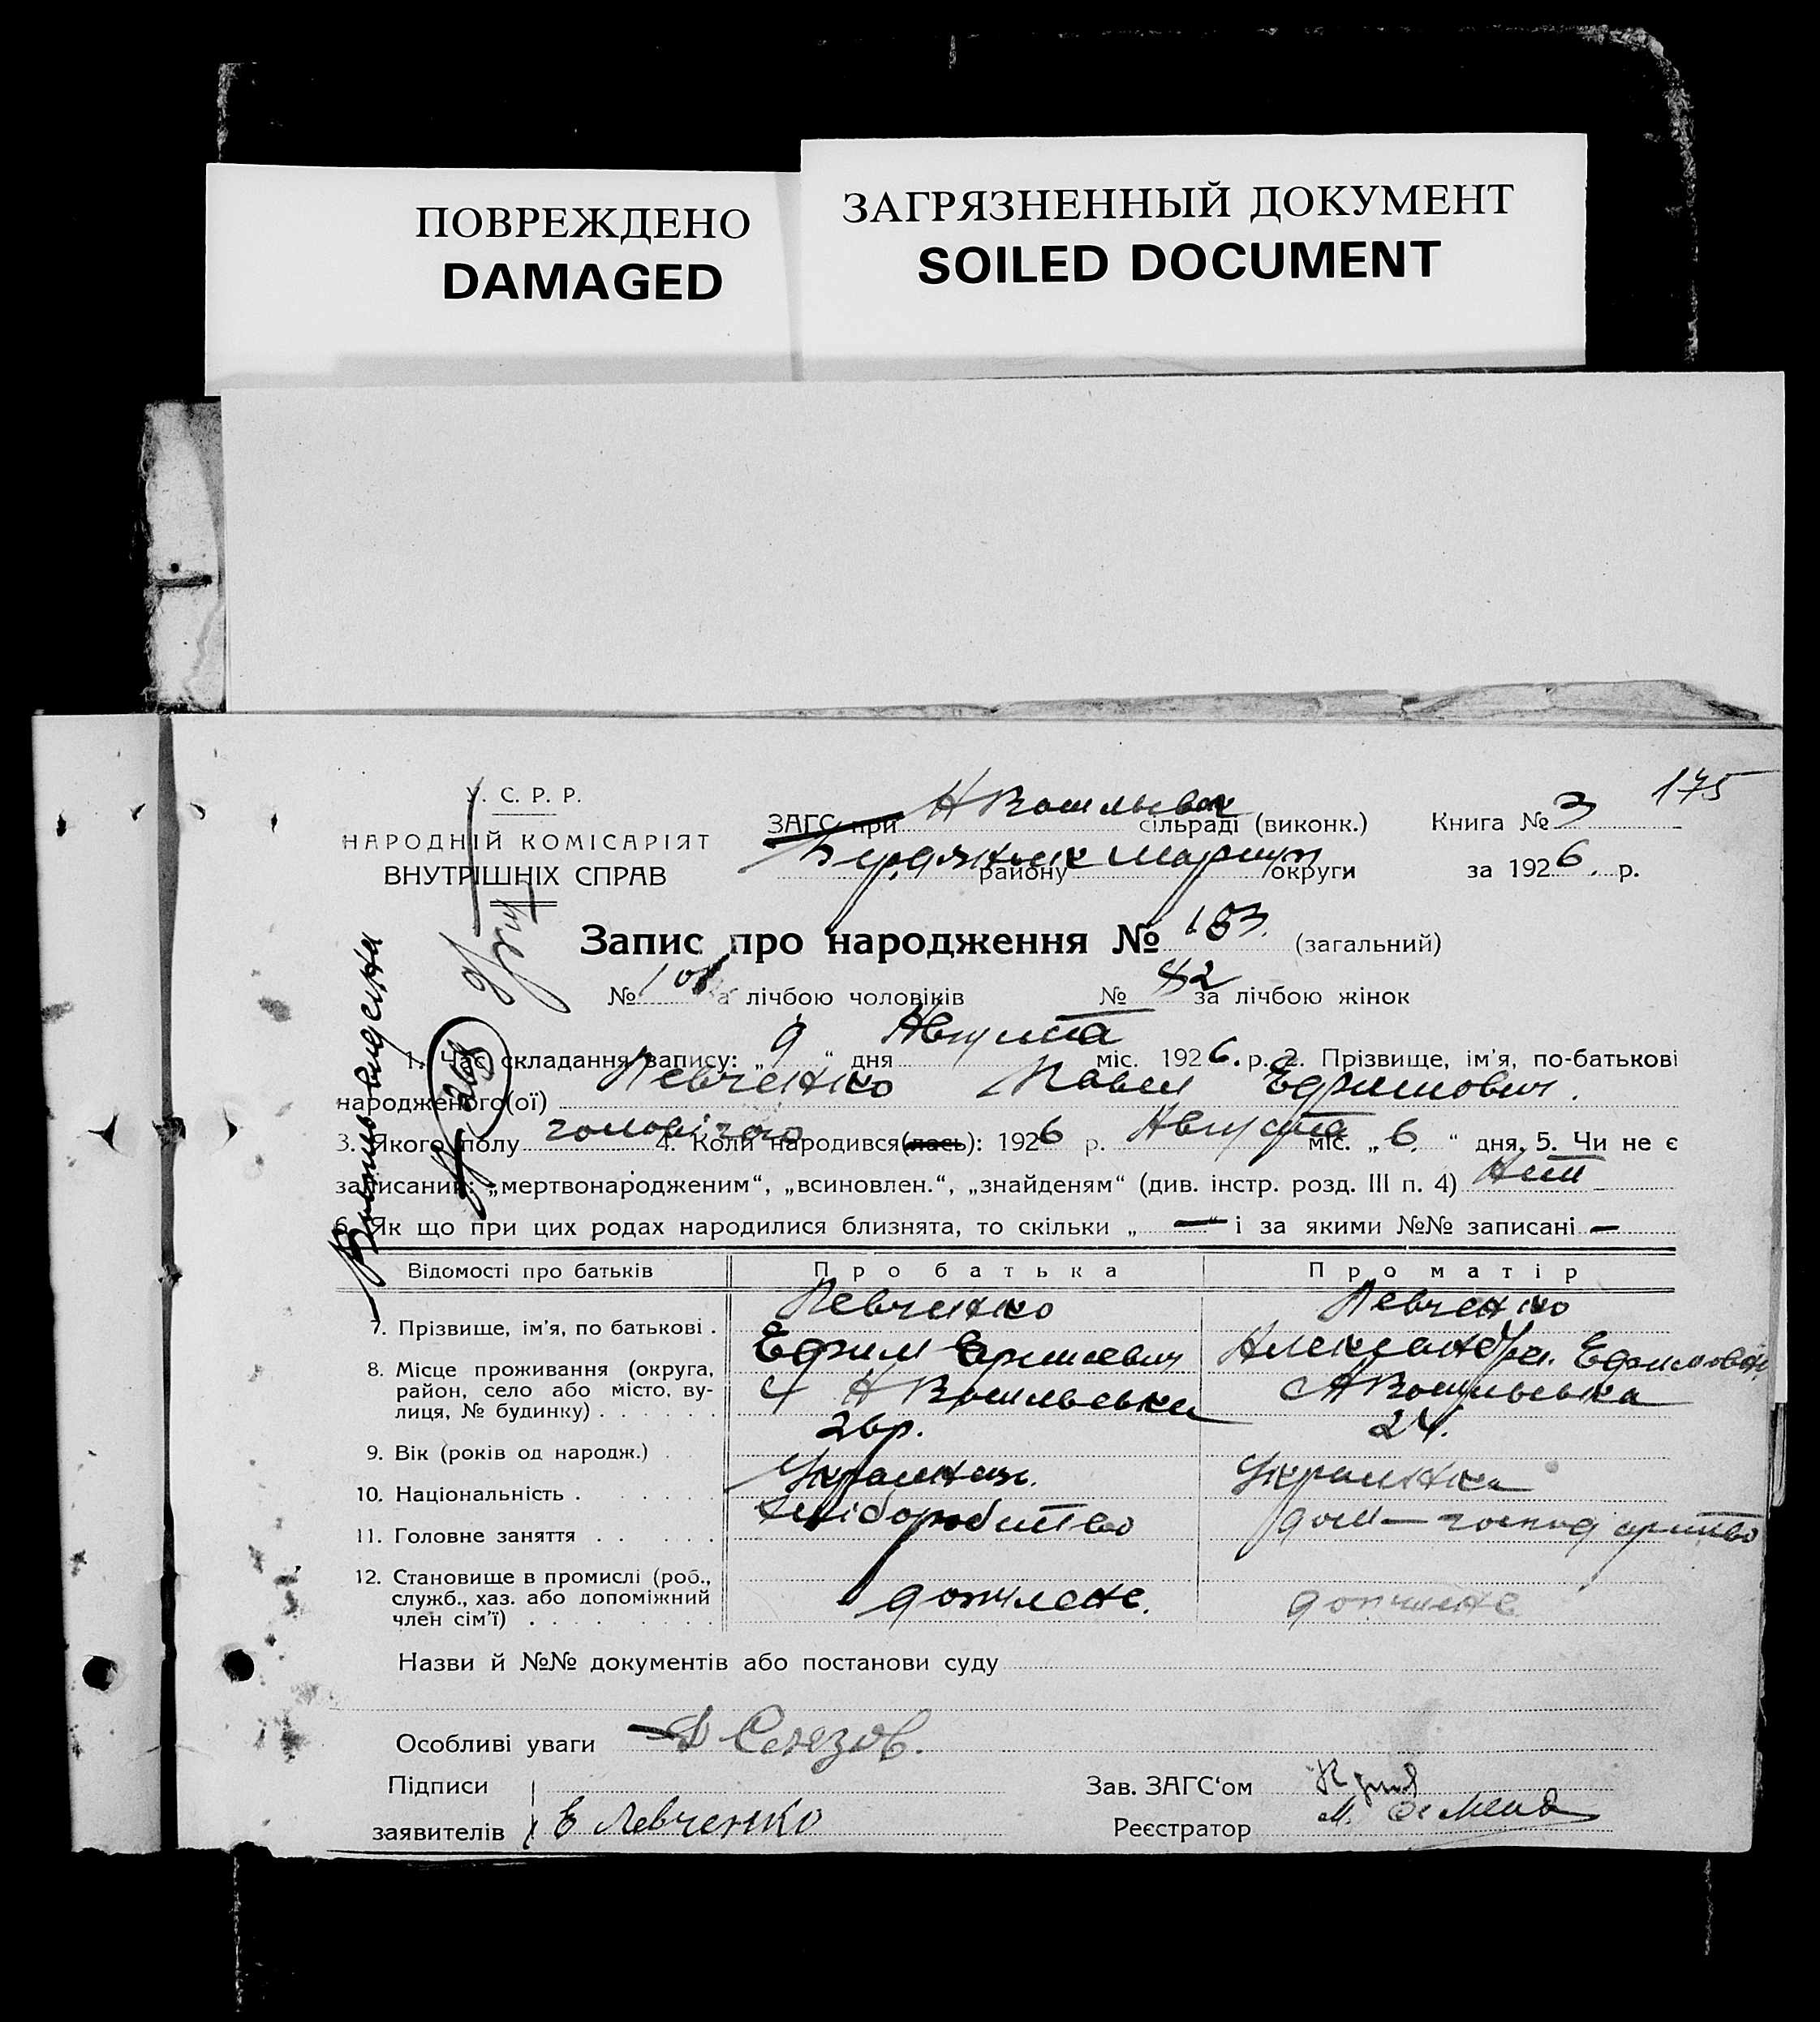 ПОВРЕЖДЕНО
DAMAGED
ЗАГРЯЗНЕННЫЙ ДОКУМЕНТ
SOILED DOCUMENT
175
У. С. Р. Р.
НАРОДНІЙ КОМІСАРІЯТ
ВНУТРІШНІХ СПРАВ
ЗАГС при сільраді (виконк.) Книга № 3
району округи за 1926 р.
Запис про народження № 183. (загальний)
№ 101 за лічбою чоловіків № 82 за лічбою жінок
1. Час складання запису: „9“ дня Августа міс. 1926. р. 2. Прізвище, ім'я, по-батькові
народженого(ої) Левченко Павел Ефимович.
3. Якого полу чоловічого 4. Коли народився(лась): 1926 р. Августа міс. „6.“ дня. 5. Чи не є
записаний: „мертвонародженим“, „всиновлен.“, „знайденям“ (див. інстр. розд. III п. 4) Нет
6. Як що при цих родах народилися близнята, то скільки „—“ і за якими №№ записані —
Відомості про батьків Про батька Про матір
7. Прізвище, ім'я, по батькові . Левченко Ефим Левченко Александра Ефимовна
8. Місце проживання (округа,
район, село або місто, ву-
лиця, № будинку) . . . . . . с Н Васильевка Н Васильевка
9. Вік (років од народж.) . 26р. 24.
10. Національність . . . . . . Украинец. Украинка
11. Головне заняття . . . . . хліборобство дом-господарство
12. Становище в промислі (роб.,
служб., хаз. або допоміжний
член сім'ї) . . . . . . допчлене. допчлене
Назви й №№ документів або постанови суду
Особливі уваги
Підписи
заявителів Е Левченко
Зав. ЗАГС'ом
Реєстратор